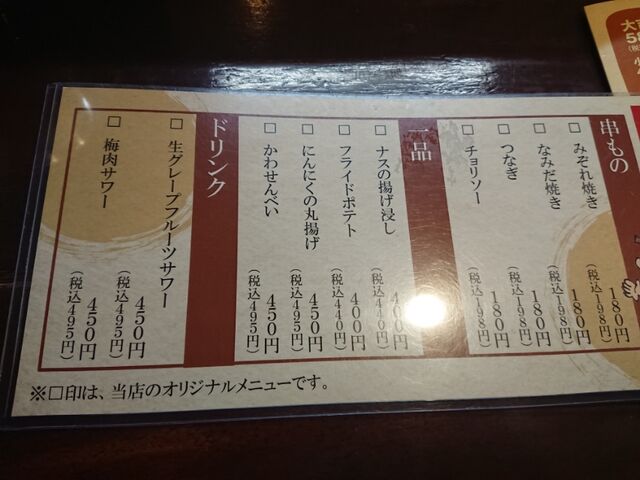 串もの
□ みぞれ焼き 180円
(税込198円)
□ なみだ焼き 180円
(税込198円)
□ つなぎ 180円
(税込198円)
□ チョリソー 180円
(税込198円)
一品
□ ナスの揚げ浸し 400円
(税込440円)
□ フライドポテト 400円
(税込440円)
□ にんにくの丸揚げ 450円
(税込495円)
□ かわせんべい 450円
(税込495円)
ドリンク
□ 生グレープフルーツサワー 450円
(税込495円)
□ 梅肉サワー 450円
(税込495円)
※□印は、当店のオリジナルメニューです。